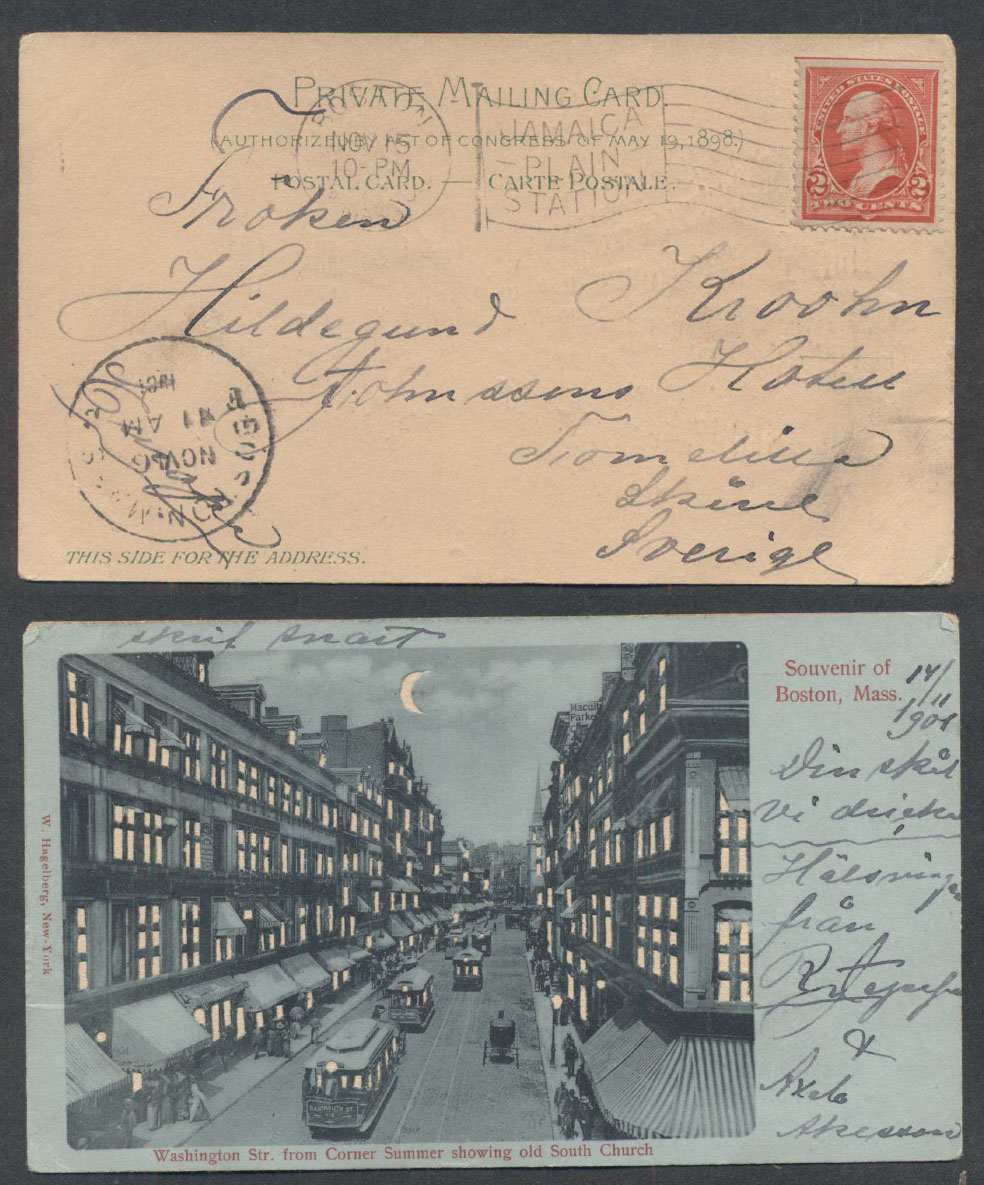 PRIVATE MAILING CARD.
(AUTHORIZED BY ACT OF CONGRESS OF MAY 19, 1898.)
POSTAL CARD. — CARTE POSTALE.
BOSTON
NOV 5
10-PM
JAMAICA
PLAIN
STATION
UNITED STATES POSTAGE
2 2
TWO CENTS
Fröken
Hildegund Kroohn
Johnssons Hotell
Tomelilla
Skåne
Sverige
BOSTON MASS
NOV 6
11 AM
1901
THIS SIDE FOR THE ADDRESS.
skrif snart
Souvenir of
Boston, Mass.
14/11
1901
Din skål
vi dricka
Hälsningar
från
&
Axel
Akesson
Macull
Parke
DARTMOUTH ST.
W. Hagelberg, New-York
Washington Str. from Corner Summer showing old South Church